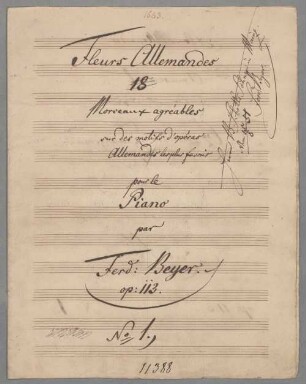 Fleurs Allemandes
18
Morceaux agréables
sur des motifs d'opéras
Allemands les plus favoris
pour le
Piano
par
Ferd: Beyer.
op: 113.
No 1.,
11388